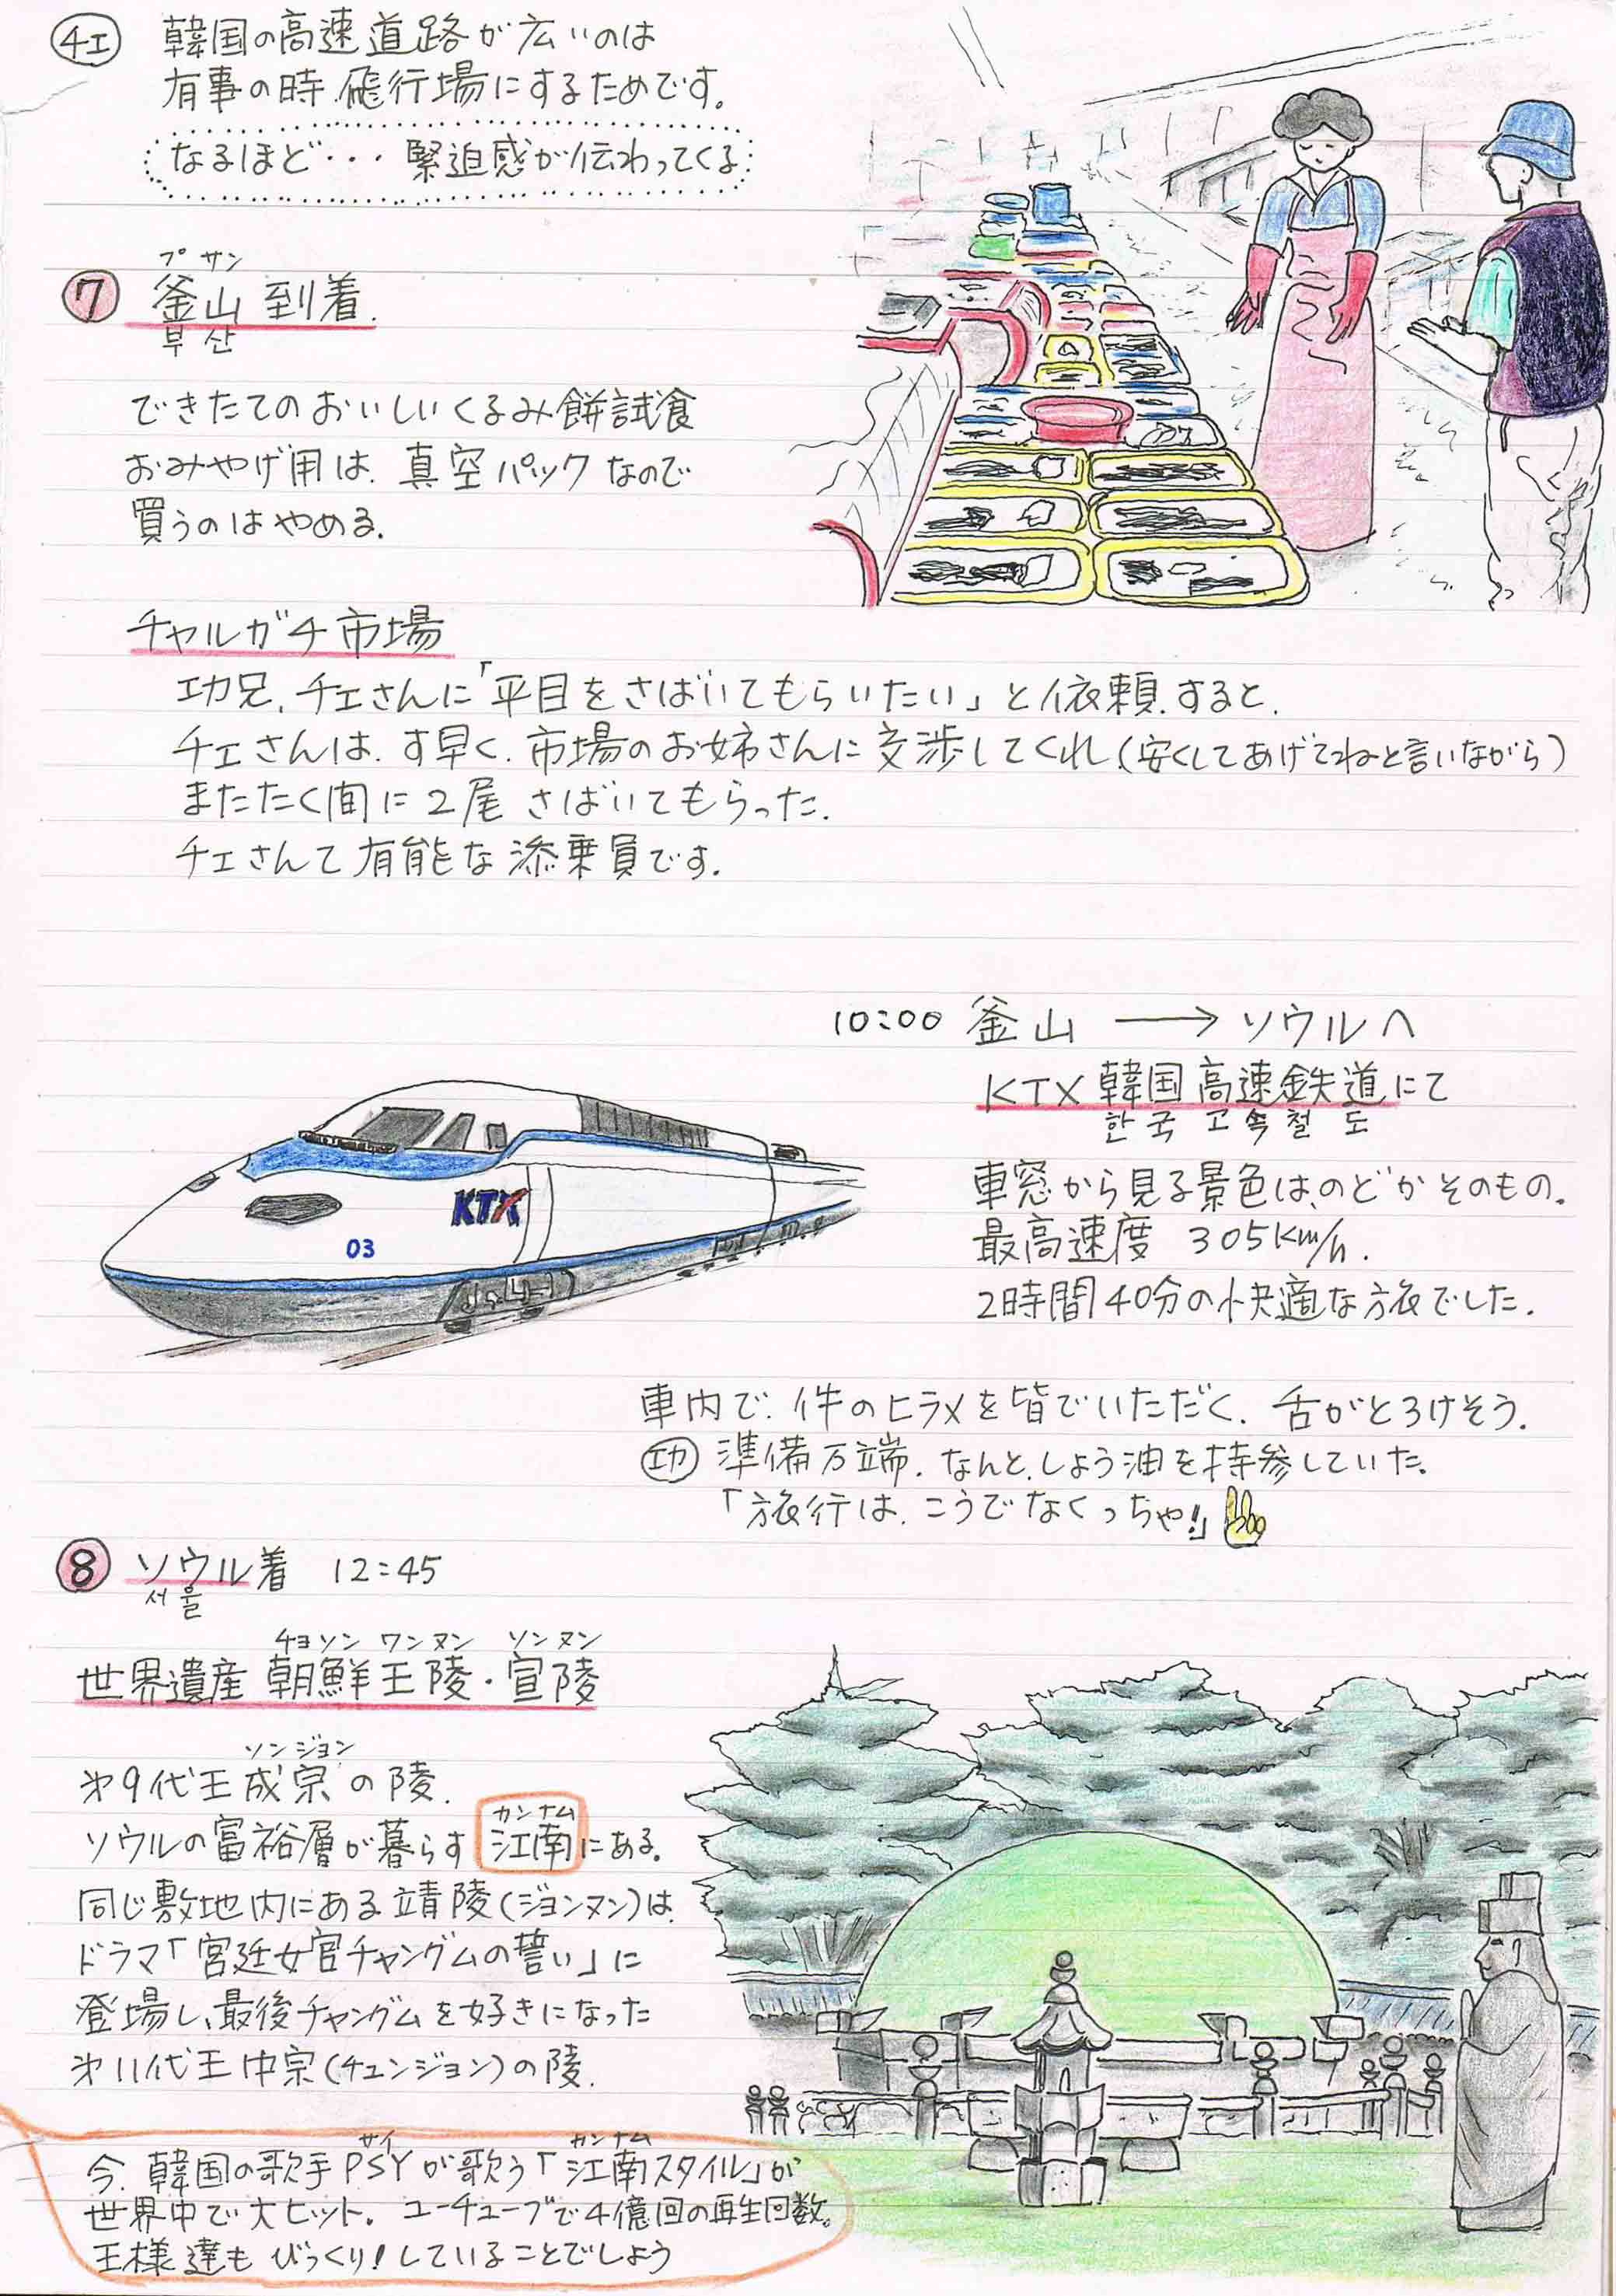 チェ 韓国の高速道路が広いのは
有事の時、飛行場にするためです。
なるほど・・・緊迫感が伝わってくる
プサン
⑦ 釜山 到着.
부산
できたてのおいしいくるみ餅試食
おみやげ用は、真空パックなので
買うのはやめる.
チャルガチ市場
功兄、チェさんに「平目をさばいてもらいたい」と依頼すると.
チェさんは、す早く、市場のお姉さんに交渉してくれ(安くしてあげてねと言いながら)
またたく間に2尾 さばいてもらった.
チェさんて有能な添乗員です.
10:00 釜山 → ソウルへ
KTX 韓国高速鉄道にて
한국 고속철도
車窓から見る景色は、のどかそのもの。
最高速度 305km/h.
2時間40分の快適な旅でした.
KTX
03
車内で、件のヒラメを皆でいただく. 舌がとろけそう.
功 準備万端. なんと、しょう油を持参していた.
「旅行は、こうでなくっちゃ!」
⑧ ソウル着 12:45
서울
チョソン ワンヌン ソンヌン
世界遺産 朝鮮王陵・宣陵
ソンジョン
才9代王成宗の陵.
カンナム
ソウルの富裕層が暮らす 江南にある。
同じ敷地内にある靖陵(ジョンヌン)は、
ドラマ「宮廷女官チャングムの誓い」に
登場し、最後チャングムを好きになった
才11代王中宗(チュンジョン)の陵.
サイ カンナム
今、韓国の歌手PSYが歌う「江南スタイル」が
世界中で大ヒット。ユーチューブで4億回の再生回数。
王様達もびっくり!していることでしょう